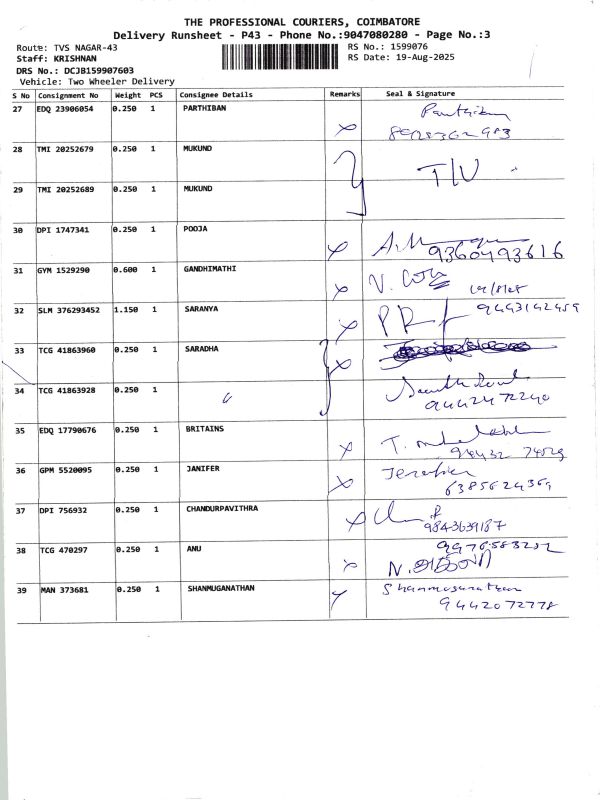 THE PROFESSIONAL COURIERS, COIMBATORE
Delivery Runsheet - P43 - Phone No.:9047080280 - Page No.:3
Route: TVS NAGAR-43 RS No.: 1599076
Staff: KRISHNAN RS Date: 19-Aug-2025
DRS No.: DCJB159907603
Vehicle: Two Wheeler Delivery
S No Consignment No Weight PCS Consignee Details Remarks Seal & Signature
27 EDQ 23906054 0.250 1 PARTHIBAN Parthiban
28 TMI 20252679 0.250 1 MUKUND T/V
29 TMI 20252689 0.250 1 MUKUND
30 DPI 1747341 0.250 1 POOJA
9360493616
31 GYM 1529290 0.600 1 GANDHIMATHI
32 SLM 376293452 1.150 1 SARANYA
9443142459
33 TCG 41863960 0.250 1 SARADHA
34 TCG 41863928 0.250 1 〃
9442472240
35 EDQ 17790676 0.250 1 BRITAINS
36 GPM 5520095 0.250 1 JANIFER
6385624369
37 DPI 756932 0.250 1 CHANDURPAVITHRA
9843639187
38 TCG 470297 0.250 1 ANU
39 MAN 373681 0.250 1 SHANMUGANATHAN Shanmuganathan
9442072778